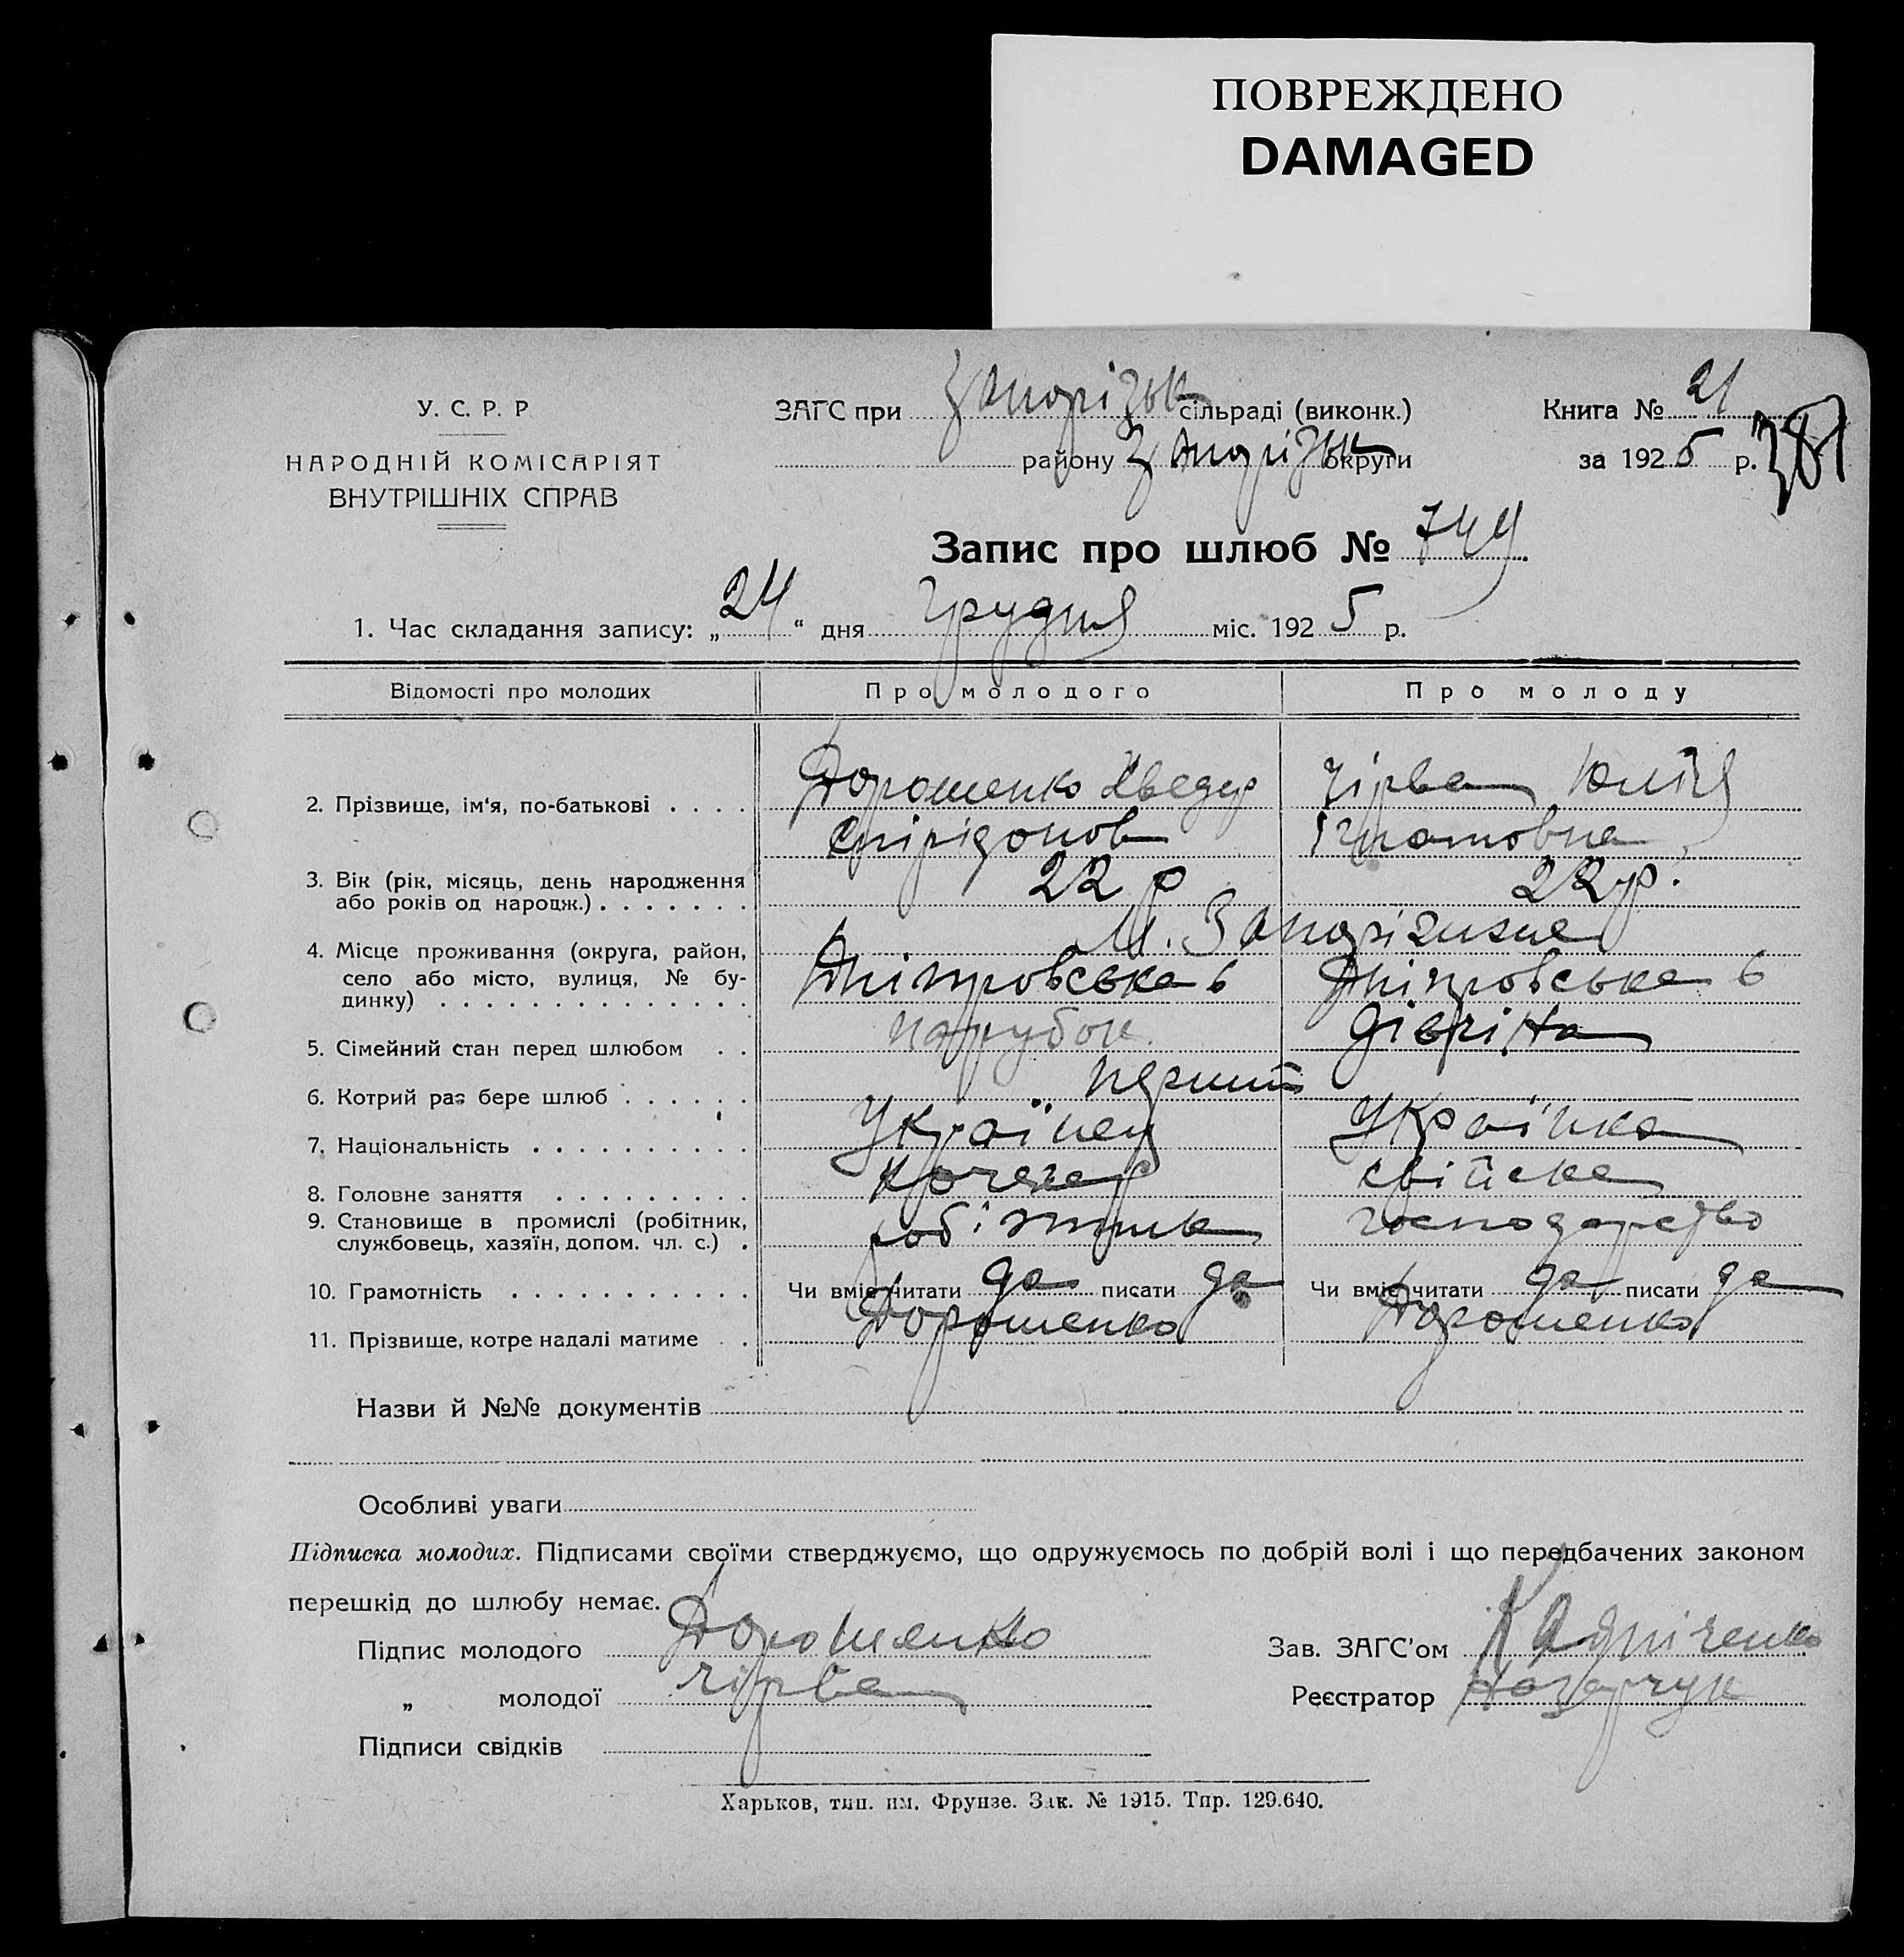 ПОВРЕЖДЕНО
DAMAGED
У. С. Р. Р
НАРОДНІЙ КОМІСАРІЯТ
ВНУТРІШНІХ СПРАВ
ЗАГС при Запорізьк сільраді (виконк.)
району Запорізьк округи
Книга № 21
за 1925 р.
381
Запис про шлюб № 744
1. Час складання запису: „24“ дня грудня міс. 1925 р.
Відомості про молодих Про молодого Про молоду
2. Прізвище, ім‘я, по-батькові . . . . Дорошенко Хведір Чірва Юлія
Спірідонов Ігнатовна
3. Вік (рік, місяць, день народження
або років од народж.) . . . . . . . 22 р 22 р.
4. Місце проживання (округа, район,
село або місто, вулиця, № бу-
динку) . . . . . . . . . . . . . .
М. Запоріжжє
Дніпровська 6 Дніпровська 6
5. Сімейний стан перед шлюбом . . парубок дівчіна
6. Котрий раз бере шлюб . . . . . . перший
7. Національність . . . . . . . . . . Українец Українка
8. Головне заняття . . . . . . . . . кочегар свійске
9. Становище в промислі (робітник,
службовець, хазяїн, допом. чл. с.) . робітник господарство
10. Грамотність . . . . . . . . . . . Чи вміє читати да писати да Чи вміє читати да писати да
11. Прізвище, котре надалі матиме . . Дорошенко Дорошенко
Назви й №№ документів
Особливі уваги
Підписка молодих. Підписами своїми стверджуємо, що одружуємось по добрій волі і що передбачених законом
перешкід до шлюбу немає.
Підпис молодого Дорошенко Зав. ЗАГС’ом
„ молодої Чірва Реєстратор Назарчук
Підписи свідків
Харьков, тип. им. Фрунзе. Зак. № 1915. Тир. 129.640.